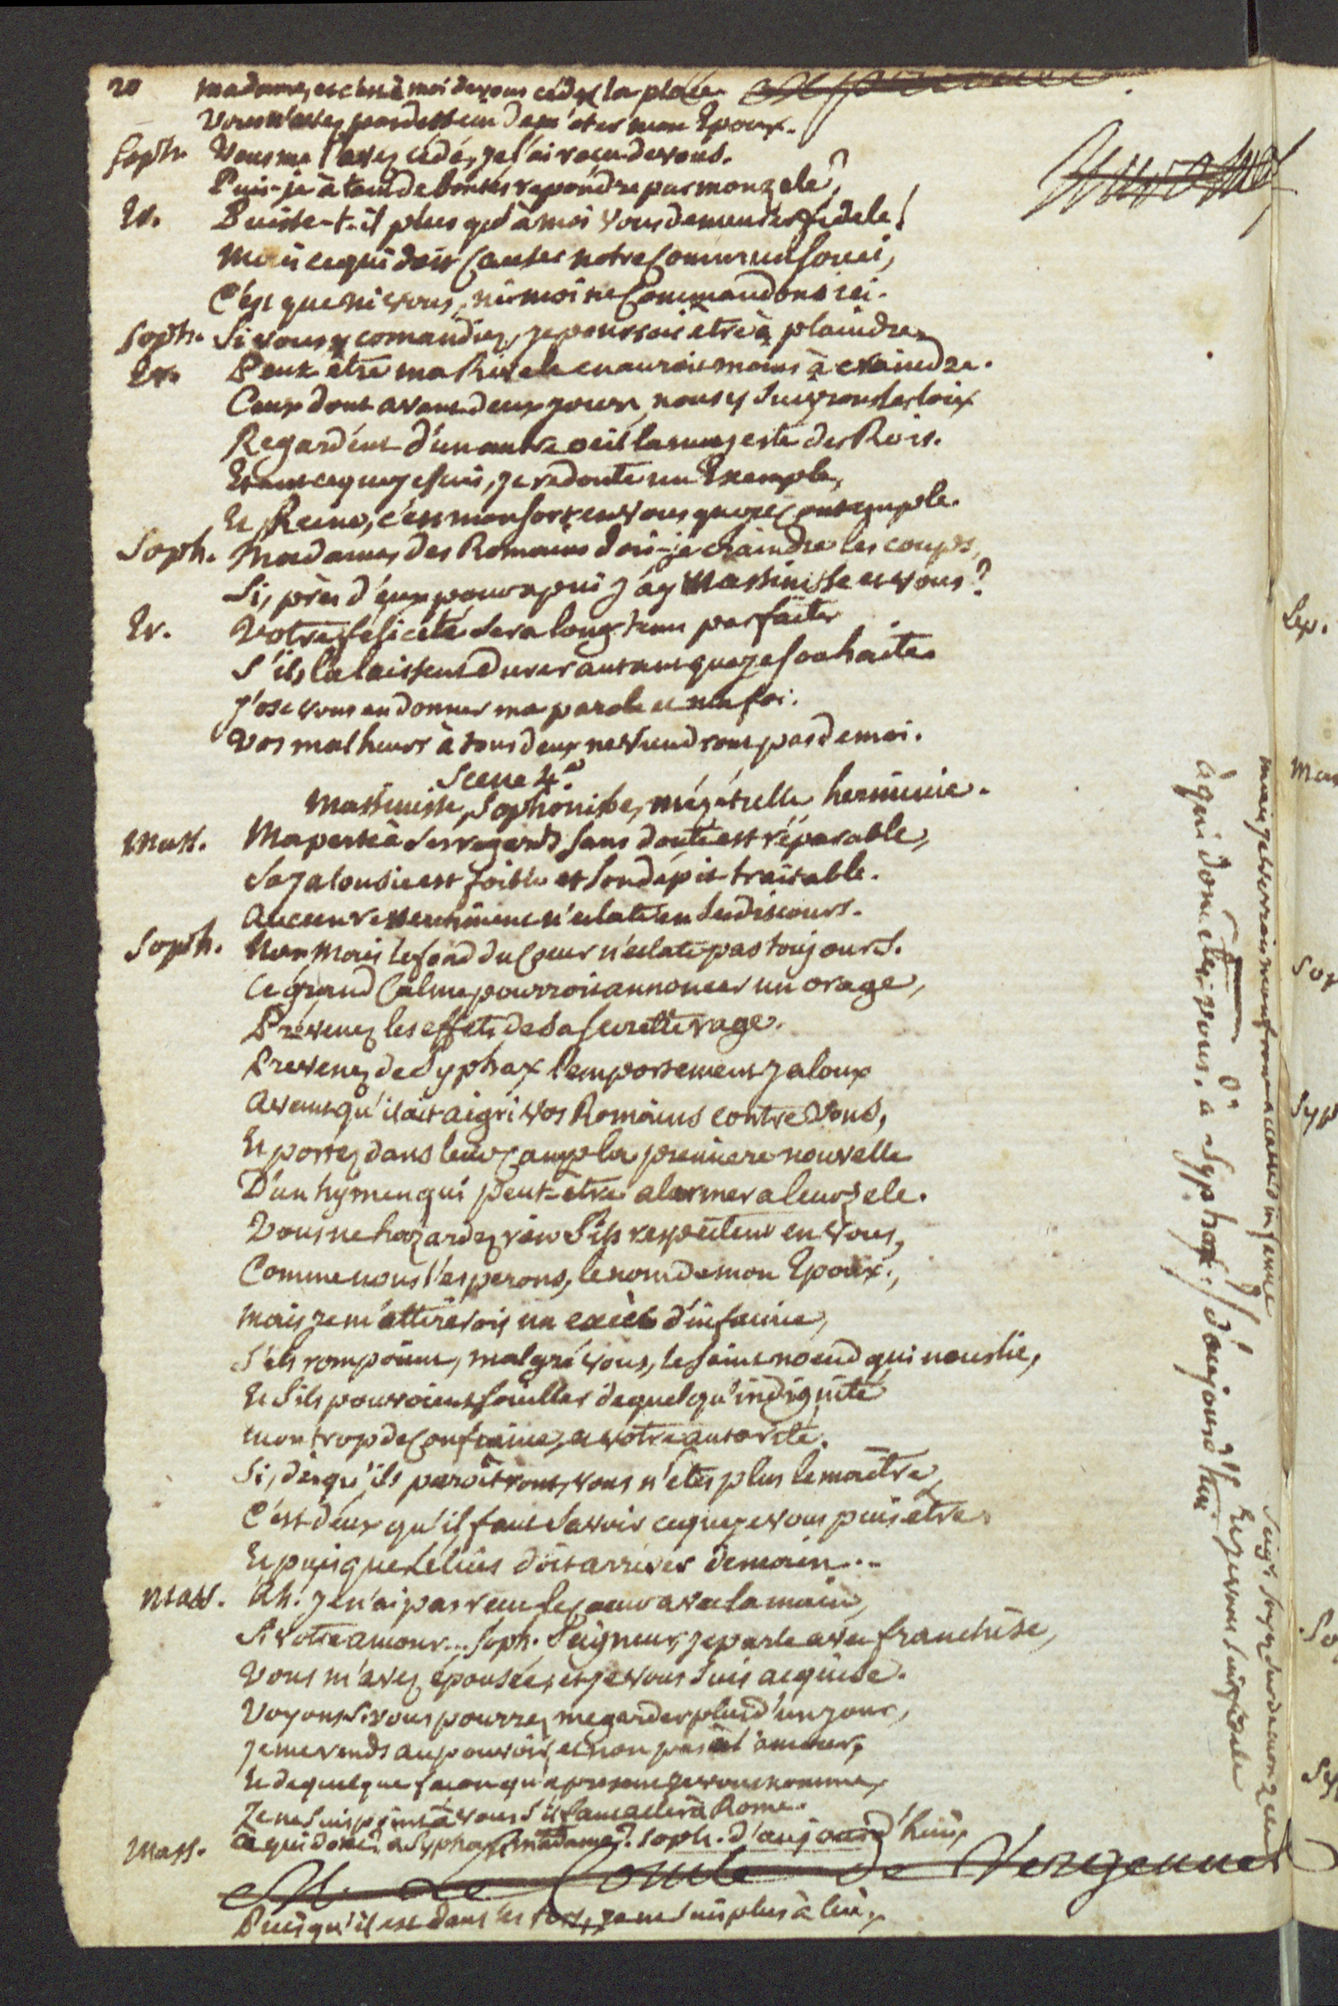 20 madame, et c'est à moi de vous céder la place
Vous n'avez pas dessein de m'oter mon Epoux.
Soph. Vous me l'avez cédé, je l'ai recu de vous.
Puis-je à tant de bontés repondre par mon zele?
Er. Puisse-t-il plus qu'à moi vous demeurer fidele!
Mais ce qui doit causer notre commun souci,
C'est que ni vous, ni moi ne commandons ici.
Soph. Si vous y comandiez, je pourrois être à plaindre.
Er. Peut être ma Rivale en auroit moins à craindre.
Ceux dont avant deux jours nous y suivrons les loix
Regardent d'un autre oeil la majesté des Rois.
Etant ce que je suis, je redoute un Exemple,
Et Reine, c'est mon sort en vous que je contemple.
Soph. Madame, des Romains dois-je craindre les coups,
Si, près d'eux pour apui j'ay Massinisse et vous?
Er. Votre felicité sera long tems parfaite
S'ils la laissent durer autant que je souhaite.
J'ose vous en donner ma parole et ma foi.
Vos malheurs à tous deux ne viendront pas de moi.
Scene 4.e
Massinisse, Sophonisbe, mégétulle herminie.
Mass. Ma perte à ses regards sans doute est réparable,
Sa jalousie est foible et son dépit traitable.
Aucun ressentiment n'eclate en ses discours.
Soph. Non mais le fond du coeur n'eclate pas toujours.
Ce grand calme pourroit annoncer un orage,
Prévenez les effets de sa secrette rage.
Prevenez de Syphax l'emportement jaloux
Avant qu'il ait aigri vos Romains contre vous,
Et portez dans leur camp la premiere nouvelle
D'un hymen qui peut-etre alarmera leur zele.
Vous ne hazardez rien s'ils respectent en vous,
Comme nous l'esperons, le nom de mon Epoux.,
Mais je m'attirerois un excès d'infamie,
S'ils rompoient, malgré vous, le saint noeud qui nous lie,
Et s'ils pouvoient souiller de quelqu'indignité
Mon trop de confiance, et votre autorité.
Si, dès qu'ils paroitront, vous n'êtes plus le maitre,
C'est d'eux qu'il faut savoir ce que je vous puis être.
Et puisque Lelius doit arriver demain...
Mass. Ah. Je n'ai pas recu le coeur avec la main,
Si votre amour... Soph. Seigneur, je parle avec franchise,
Vous m'avez épousée, et je vous suis acquise.
Voyons si vous pourrez me garder plus d'un jour,
Je me rends au pouvoir, et non pas à l'amour,
Et de quelque façon qu'à present je vous nomme,
Je ne suis point à vous s'il faut aller à Rome.
Mass. A qui donc? à Syphax, madame? Soph. d'aujourd'hui,
M. Le Comte de Vergennes
Puisqu'il est dans les fers, je ne suis plus à lui.
à qui donc etes-vous. a Syphax. d'aujourd'hui
mais je verrois mon front accablé d'infamie
Et je vous suis fidele
Sep.
Mas
Sop
Syp
So